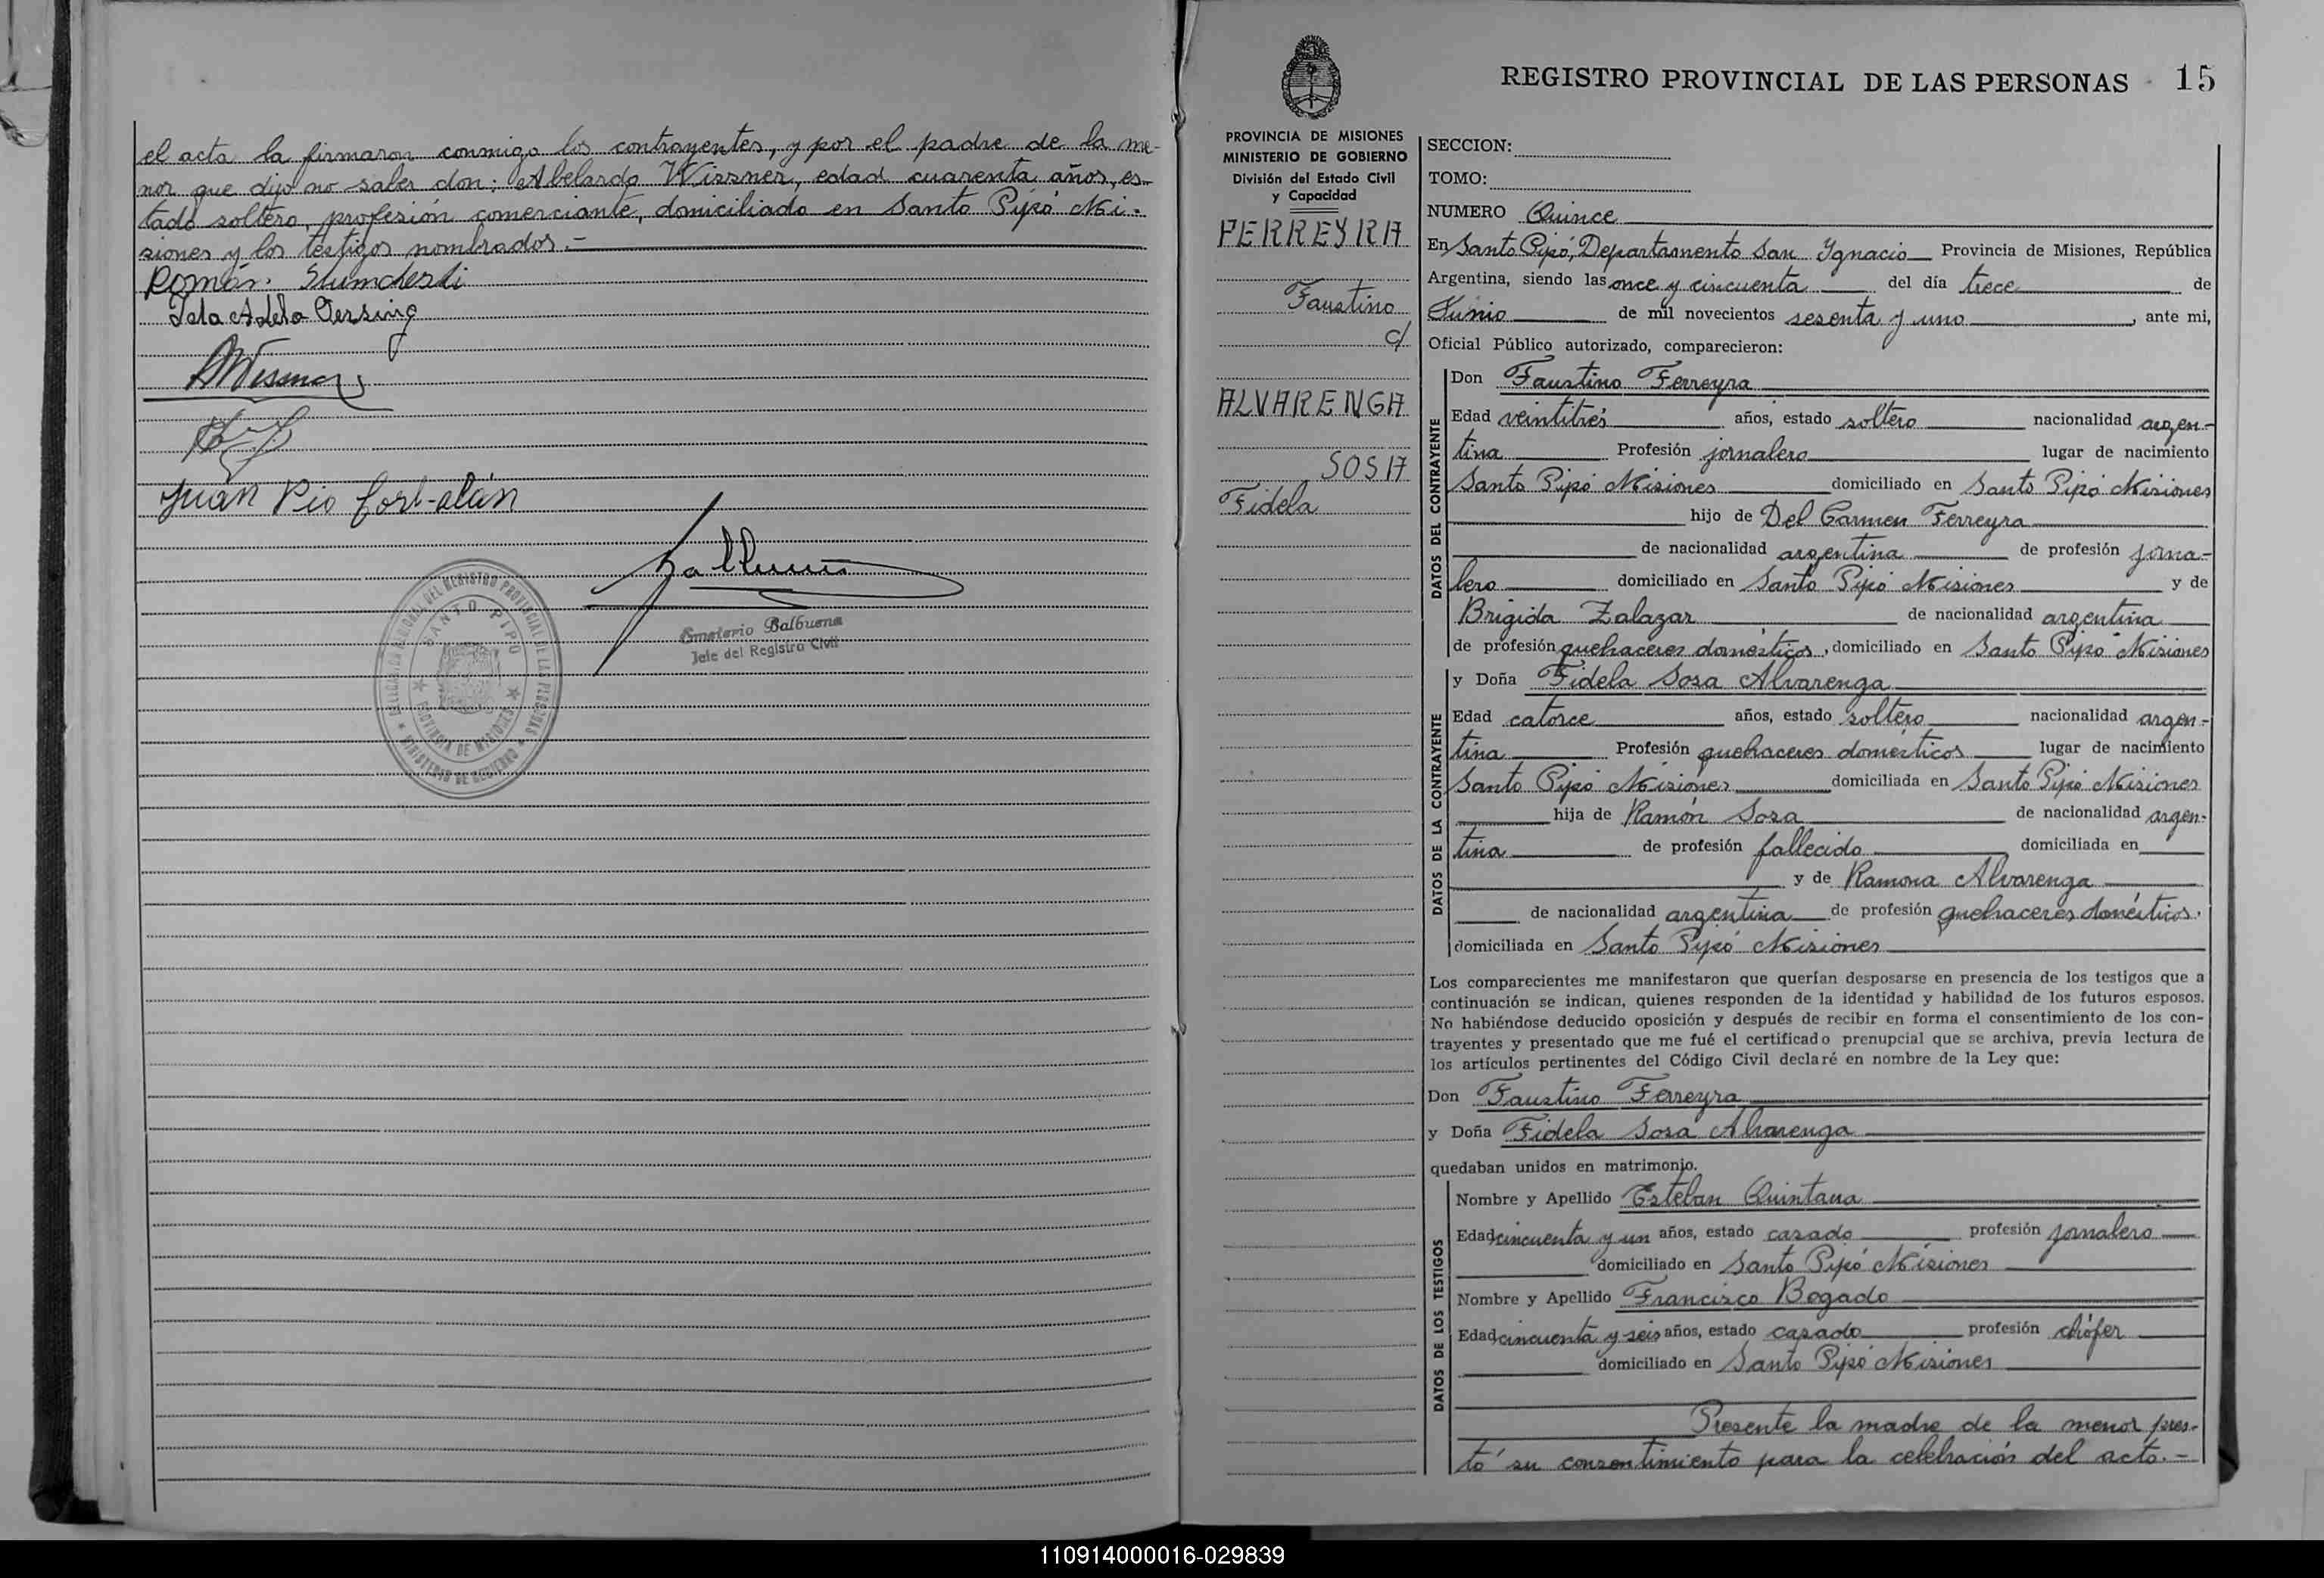 el acta la firmaron conmigo los contrayentes, y por el padre de la me-
nor que dijo no saber don: Abelardo Wissner, edad cuarenta años, es-
tado soltero, profesión comerciante, domiciliado en Santo Pipó Mi-
siones y los testigos nombrados.-
Román
Adela
Juan Pio
DELEGACION REGIONAL DEL REGISTRO PROVINCIAL DE LAS PERSONAS
SANTO PIPO
PROVINCIA DE MISIONES
MINISTERIO DE GOBIERNO
Emeterio Balbuena
Jefe del Registro Civil
REGISTRO PROVINCIAL DE LAS PERSONAS 15
PROVINCIA DE MISIONES
MINISTERIO DE GOBIERNO
División del Estado Civil
y Capacidad
FERREYRA
Faustino
c/
ALVARENGA
SOSA
Fidela
SECCION:
TOMO:
NUMERO Quince
En Santo Pipó, Departamento San Ygnacio Provincia de Misiones, República
Argentina, siendo las once y cincuenta del día trece de
Junio de mil novecientos sesenta y uno, ante mi,
Oficial Público autorizado, comparecieron:
DATOS DEL CONTRAYENTE
Don Faustino Ferreyra
Edad veintitrés años, estado soltero nacionalidad argen-
tina Profesión jornalero lugar de nacimiento
Santo Pipó Misiones domiciliado en Santo Pipó Misiones
hijo de Del Carmen Ferreyra
de nacionalidad argentina de profesión jorna-
lero domiciliado en Santo Pipó Misiones y de
Brigida Zalazar de nacionalidad argentina
de profesión quehaceres domésticos, domiciliado en Santo Pipó Misiones
DATOS DE LA CONTRAYENTE
y Doña Fidela Sosa Alvarenga
Edad catorce años, estado soltero nacionalidad argen-
tina Profesión quehaceres domésticos lugar de nacimiento
Santo Pipó Misiones domiciliada en Santo Pipó Misiones
hija de Ramón Sosa de nacionalidad argen-
tina de profesión fallecido domiciliada en
y de Ramona Alvarenga
de nacionalidad argentina de profesión quehaceres domésticos.
domiciliada en Santo Pipó Misiones
Los comparecientes me manifestaron que querían desposarse en presencia de los testigos que a
continuación se indican, quienes responden de la identidad y habilidad de los futuros esposos.
No habiéndose deducido oposición y después de recibir en forma el consentimiento de los con-
trayentes y presentado que me fué el certificado prenupcial que se archiva, previa lectura de
los artículos pertinentes del Código Civil declaré en nombre de la Ley que:
Don Faustino Ferreyra
y Doña Fidela Sosa Alvarenga
quedaban unidos en matrimonio.
DATOS DE LOS TESTIGOS
Nombre y Apellido Esteban Quintana
Edad cincuenta y un años, estado casado profesión jornalero
domiciliado en Santo Pipó Misiones
Nombre y Apellido Francisco Bogado
Edad cincuenta y seis años, estado casado profesión chófer
domiciliado en Santo Pipó Misiones
Presente la madre de la menor pres-
tó su consentimiento para la celebración del acto.-
110914000016-029839